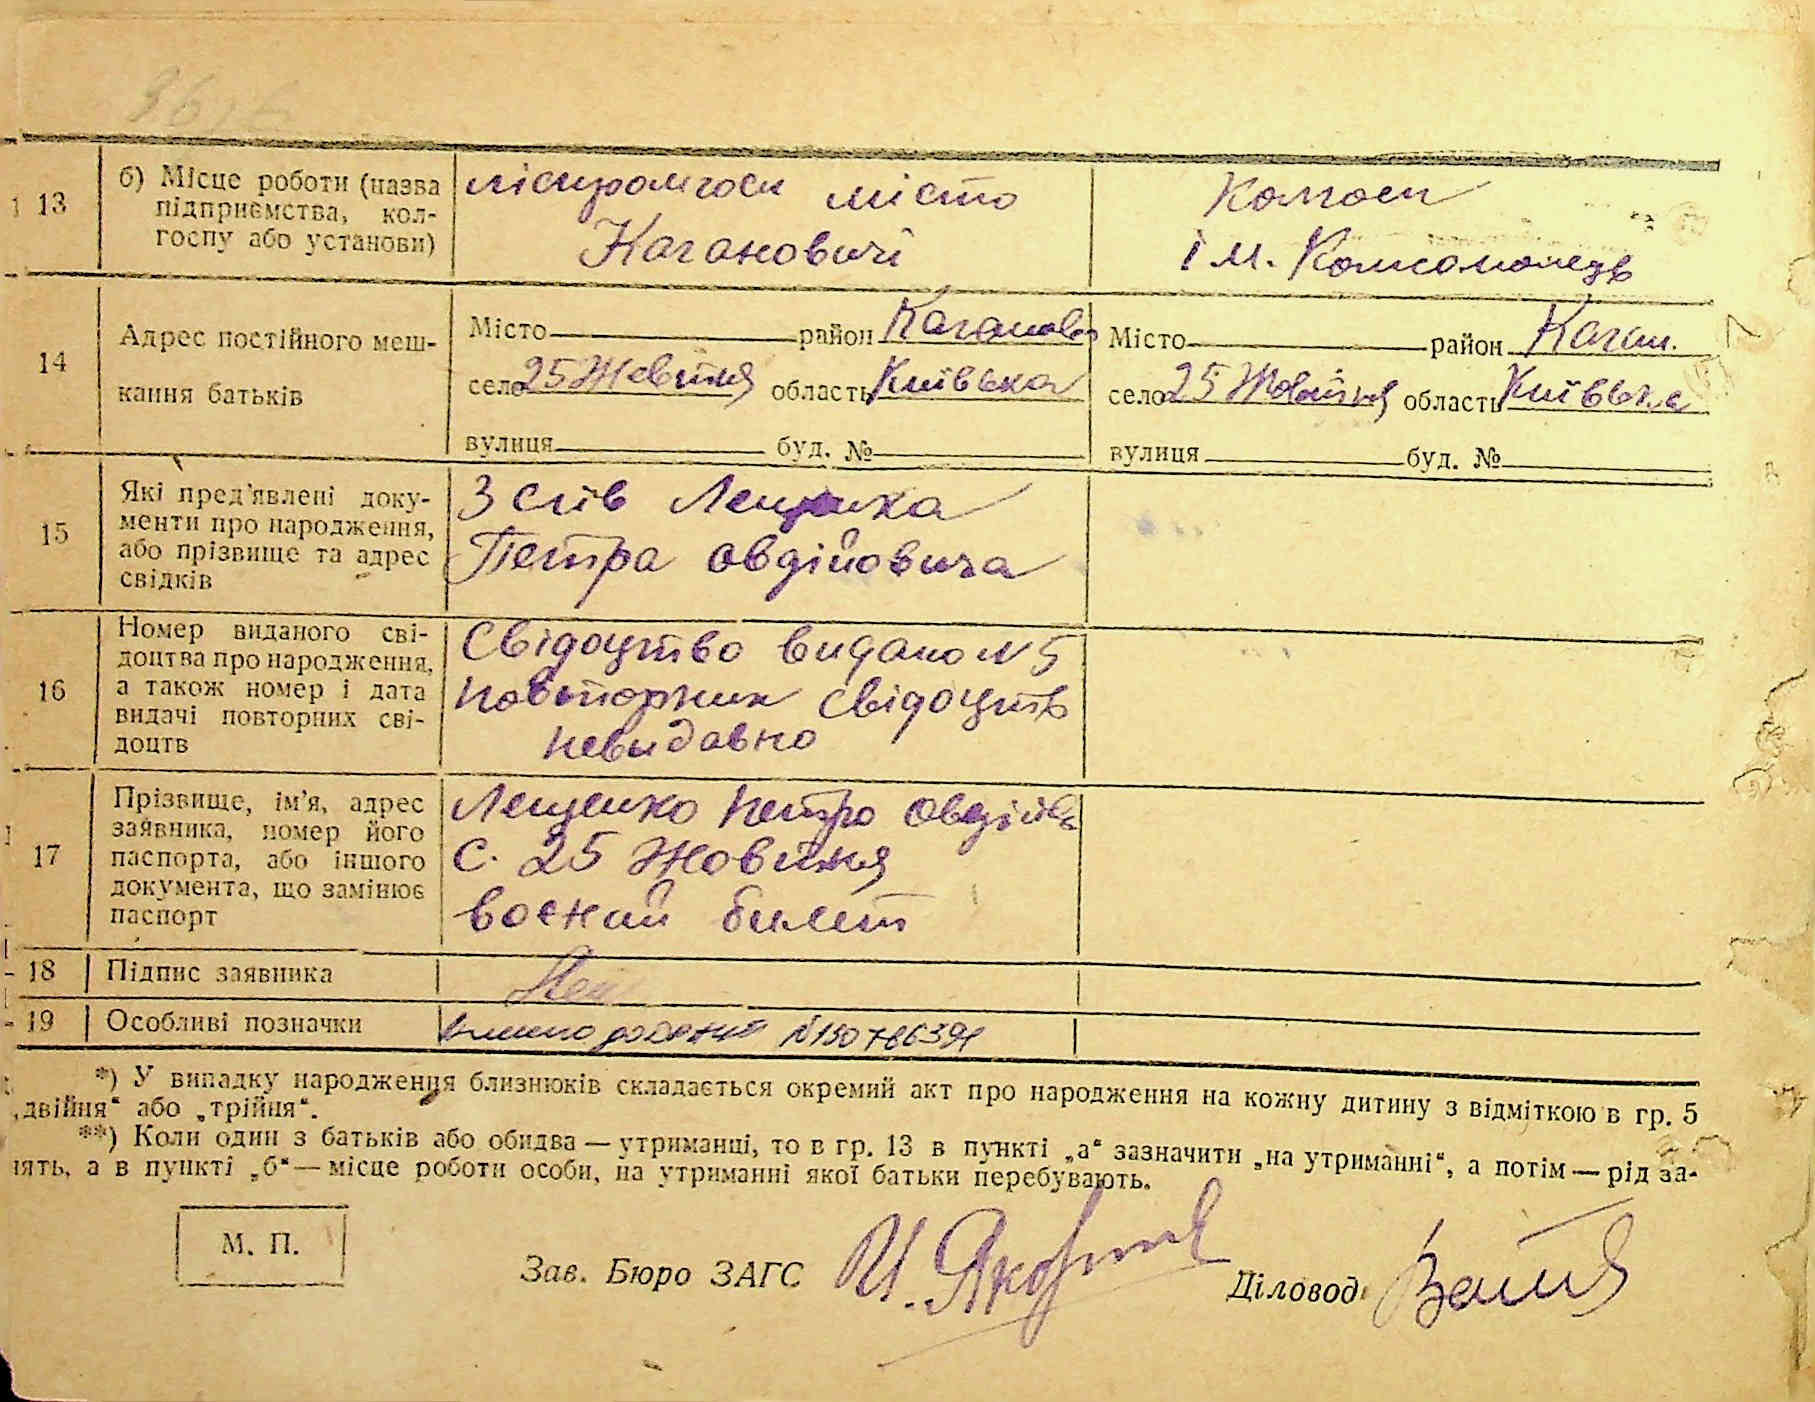 13
б) Місце роботи (назва
підприємства, кол-
госпу або установи)
ліспромгосп місто
Кагановичі
Колгосп
ім. Комсомолець
14
Адрес постійного меш-
кання батьків
Місто район Каганов
село 25 Жовтня область Київська
вулиця буд. №
Місто район Каган.
село 25 Жовтня область Київська
вулиця буд. №
15
Які пред'явлені доку-
менти про народження,
або прізвище та адрес
свідків
З слів Лещенка
Петра Овдійовича
16
Номер виданого сві-
доцтва про народження,
а також номер і дата
видачі повторних сві-
доцтв
Свідоцтво видано № 5
повторних свідоцтв
невидавно
17
Прізвище, ім'я, адрес
заявника, номер його
паспорта, або іншого
документа, що замінює
паспорт
Лещенко Петро Овдійов
С. 25 Жовтня
воєний билет
18
Підпис заявника
Лещ
19
Особливі позначки
*) У випадку народження близнюків складається окремий акт про народження на кожну дитину з відміткою в гр. 5
„двійня“ або „трійня“.
**) Коли один з батьків або обидва — утриманці, то в гр. 13 в пункті „а“ зазначити „на утриманні“, а потім — рід за-
нять, а в пункті „б“ — місце роботи особи, на утриманні якої батьки перебувають.
М. П.
Зав. Бюро ЗАГС
Діловод